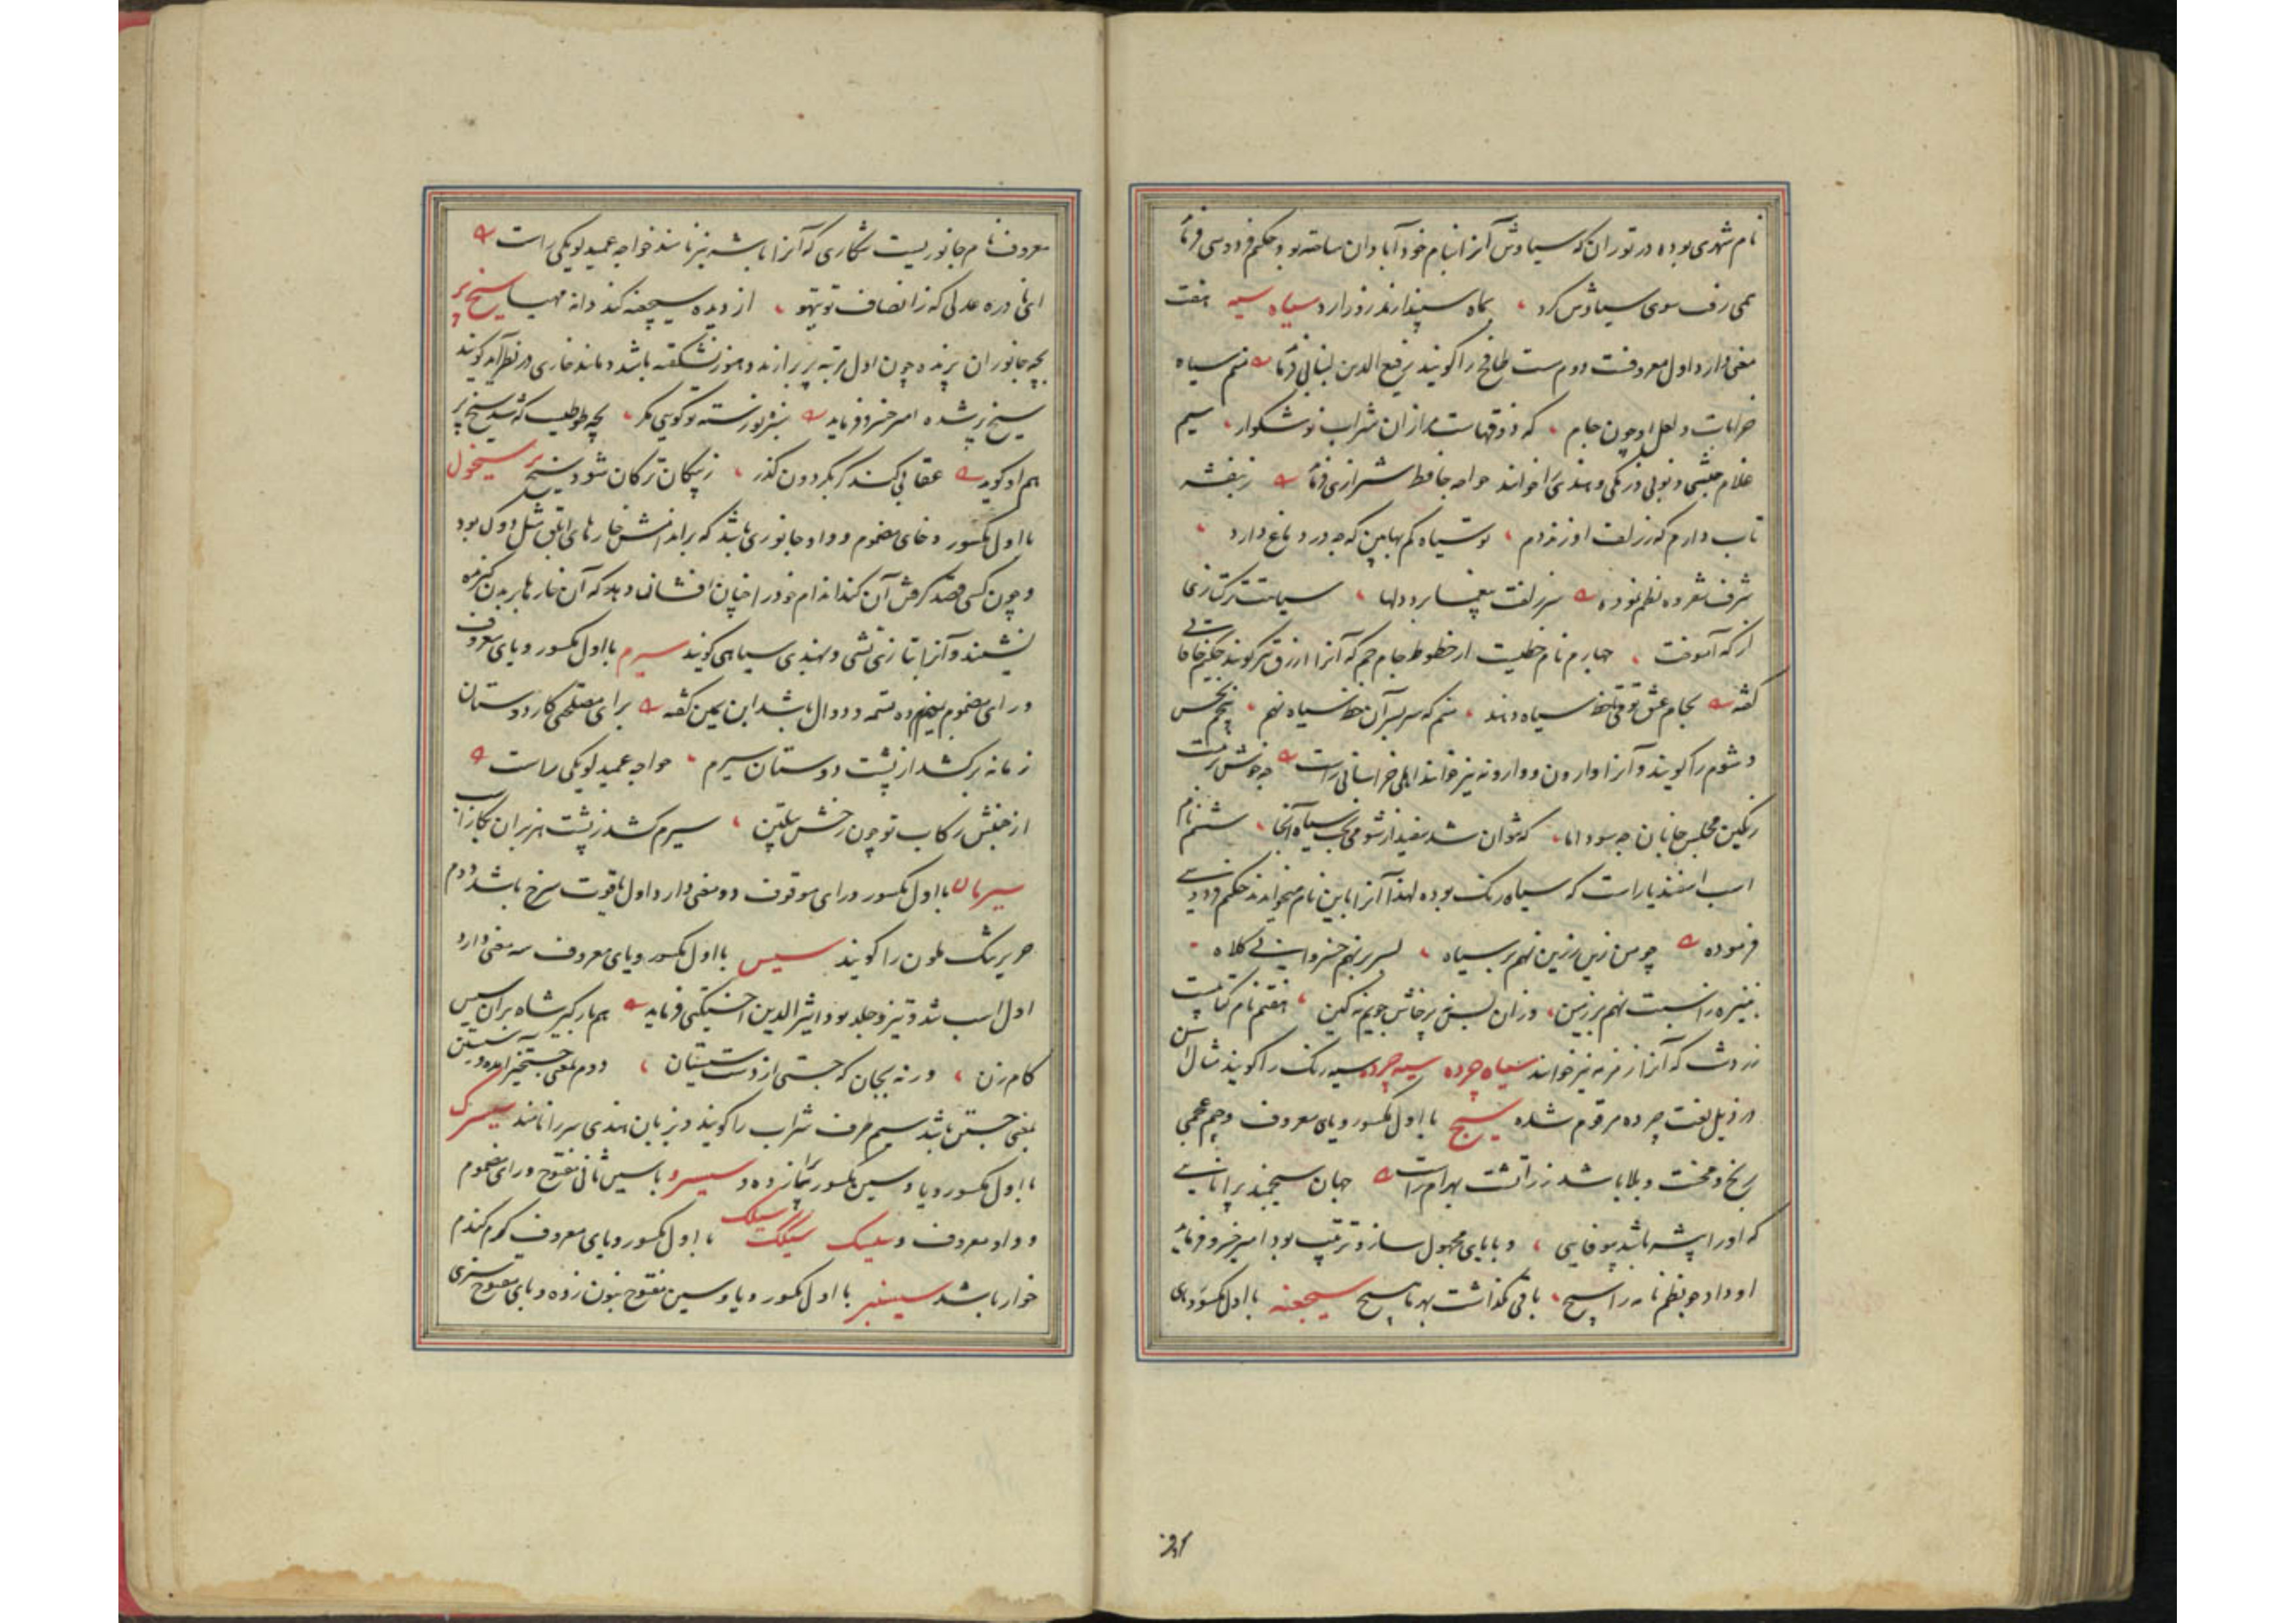 نام شهری بوده در توران که سیاوش آنرا بنام خود آبادان ساخته بود حکیم فردوسی فرماید
همی رفت سوی سیاوش کرد ، بماه سپندارمذ روز ارد سیاه سیه هفت
معنی دارد اول معروفست دوم مست طافح را گویند رفیع الدین لنبانی فرماید منم سیاه
خرابات و لعل او چون جام ، که ذوقهاست مرا زان شراب نوشگوار ، سیم
غلام حبشی و نوبی و زنگی و هندی را خوانند خواجه حافظ شیرازی فرماید ز بنفشه
تاب دارم که ز زلف او زند دم ، تو سیاه کم بها بین که چه در دماغ دارد ،
شرف شفروه نظم نموده سر زلفت بیغما برد دلها ، سیاهت ترکتازی
از که آموخت ، چهارم نام خطیست از خطوط جام جم که آنرا ازرق نیز گویند حکیم خاقانی
گفته بجام عشق تو می تا خط سیاه دهند ، منم که سر بسر آن خط سیاه نهم ، پنجم نحس
و شوم را گویند و آنرا وارون و وارونه نیز خوانند اهلی خراسانی راست چه خوش رفت
رنگین مجلس جانان چه سود اما ، که نتوان شد سفید از شومی بخت سیاه آنجا ، ششم نام
اسب اسفندیار است که سیاه رنگ بوده لهذا آنرا باین نام میخواندند حکیم فردوسی
فرموده چو من زین زرین نهم بر سیاه ، بسر بر نهم خسروانی کلاه ،
نبیره را نسبت نهم بر زمین ، وزان پس نه پرخاش جویم نه کین ، هفتم نام کتابیست
زردشت که آنرا زمزمه نیز خوانند سیاه چرده سیه چرده سیه رنگ را گویند مثال این
در ذیل لغت چرده مرقوم شده سیج با اول مکسور و یای معروف و جیم عجمی
رنج و محنت و بلا باشد زراتشت بهرام راست جهان سیجمند بر
که او را پیشه باشد بیوفایی ، و با یای مجهول ساز و ترتیب بود امیر خسرو فرماید
او داد چو نظم نامه را سیج ، باقی نگذاشت بهر ما هیچ سیجغنه با اول مکسور و یای
معروف نام جانوریست شکاری که آنرا باشه نیز نامند خواجه عمید لویکی راست
آنی نادره عدلی که ز انصاف تو تیهو ، از دیده سیجغنه کند دانه مهیا سیخ پر
بچه جانوران پرنده چون اول مرتبه پر برآرند و هنوز نشکفته باشد و مانند خاری در نظر آید گویند
سیخ پر شده امیر خسرو فرماید سبزه نورسته تو گویی مگر ، بچه طوطیست که شد سیخ پر
هم او گوید عقابی کند گر بگردون گذر ، ز پیکان ترکان شود سیخ پر سیخول
با اول مکسور و خای مضموم و واو جانوری باشد که بر اندامش خارهای ابلق مثل دوک بود
و چون کسی قصد گرفتن آن کند اندام خود را چنان افشاند که آن خارها بر بدن گیرنده
نشیند و آنرا بتازی تشی و بهندی سیاهی گویند سیرم با اول مکسور و یای معروف
و رای مضموم بمیم زده تسمه و دوال باشد ابن یمین گفته برای مصلحی کار دوستان
زمانه برکشد از پشت دوستان سیرم ، خواجه عمید لویکی راست
از جنبش رکاب تو چون رخش پیلتن ، سیرم کشد ز پشت هزبران کارزار
سیرمان با اول مکسور و رای موقوف دو معنی دارد اول یاقوت سرخ باشد دوم
حریر تنک ملون را گویند سیس با اول مکسور و یای معروف سه معنی دارد
اول اسب تند و تیز و جلد بود اثیر الدین اخسیکتی فرماید همبار گیر شاه بران سیس
کام زن ، ورنه بجان که جستی از دست ، دوم بمعنی جست و خیز آمده و سیستن
بمعنی جستن باشد سیم ظرف شراب را گویند و بزبان هندی سر را نامند سیسرک
با اول مکسور و یا و سین مکسور برای زده و سیسرو با سین ثانی مفتوح و رای مضموم
و واو معروف و سیسک سیسگک سیسلک با اول مکسور و یای معروف کرم گندم
خوار باشد سیسنبر با اول مکسور و یا و سین مفتوح بنون زده و بای مفتوح سبزی